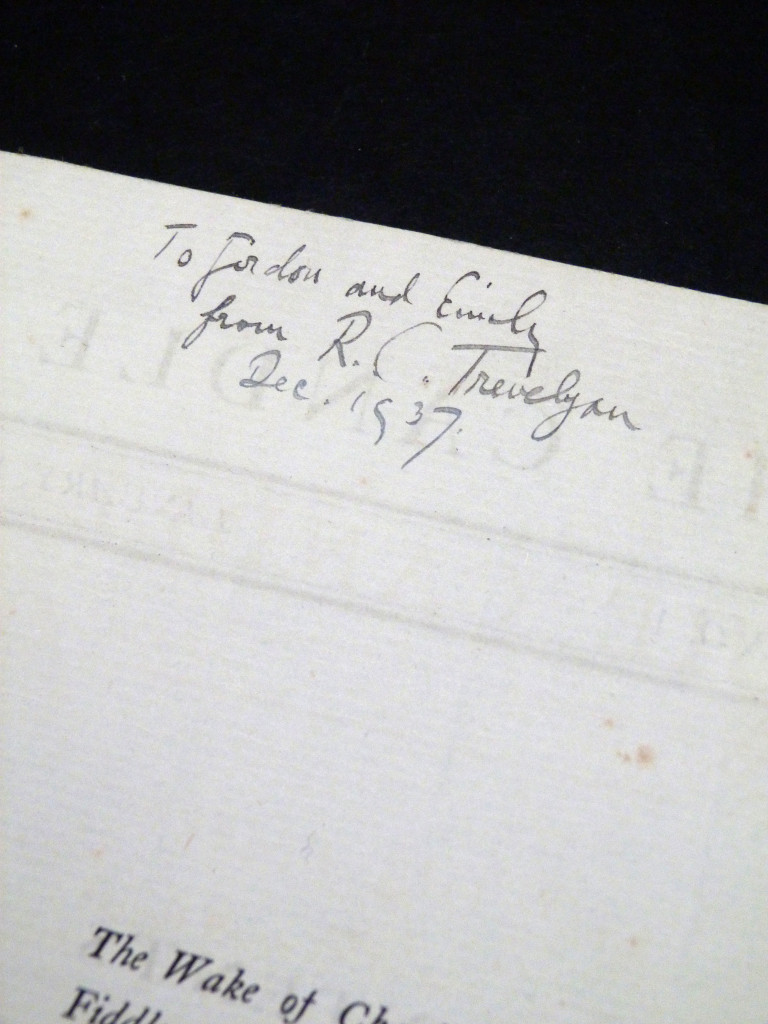 To Gordon and Emily
from R. C. Trevelyan
Dec. 1937.
The Wake of